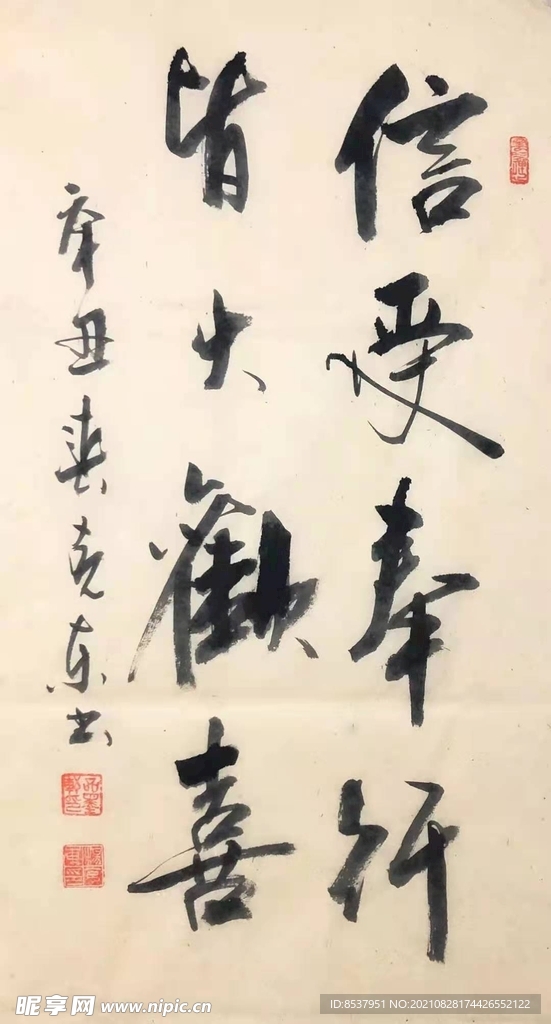 信受奉行
皆大歡喜
辛丑春克东书
昵享网 www.nipic.cn
ID:8537951 NO:20210828174426552122